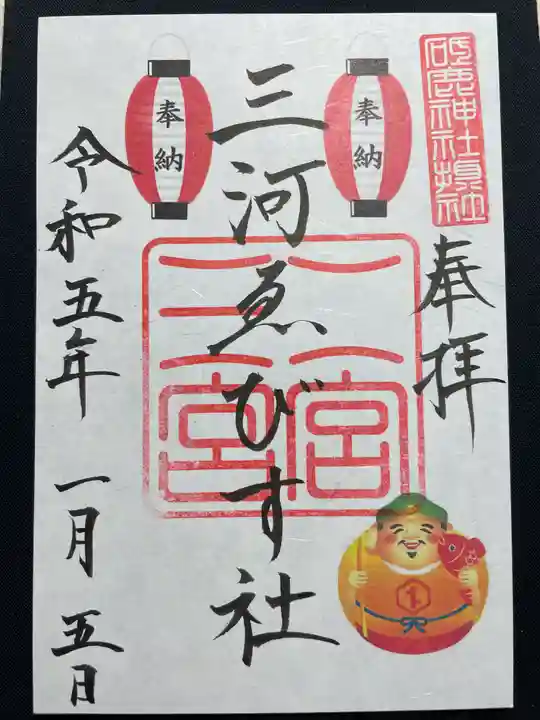 砥鹿神社摂社
奉拝
奉納
三河ゑびす社
奉納
二宮
三宮
令和五年 一月 五日